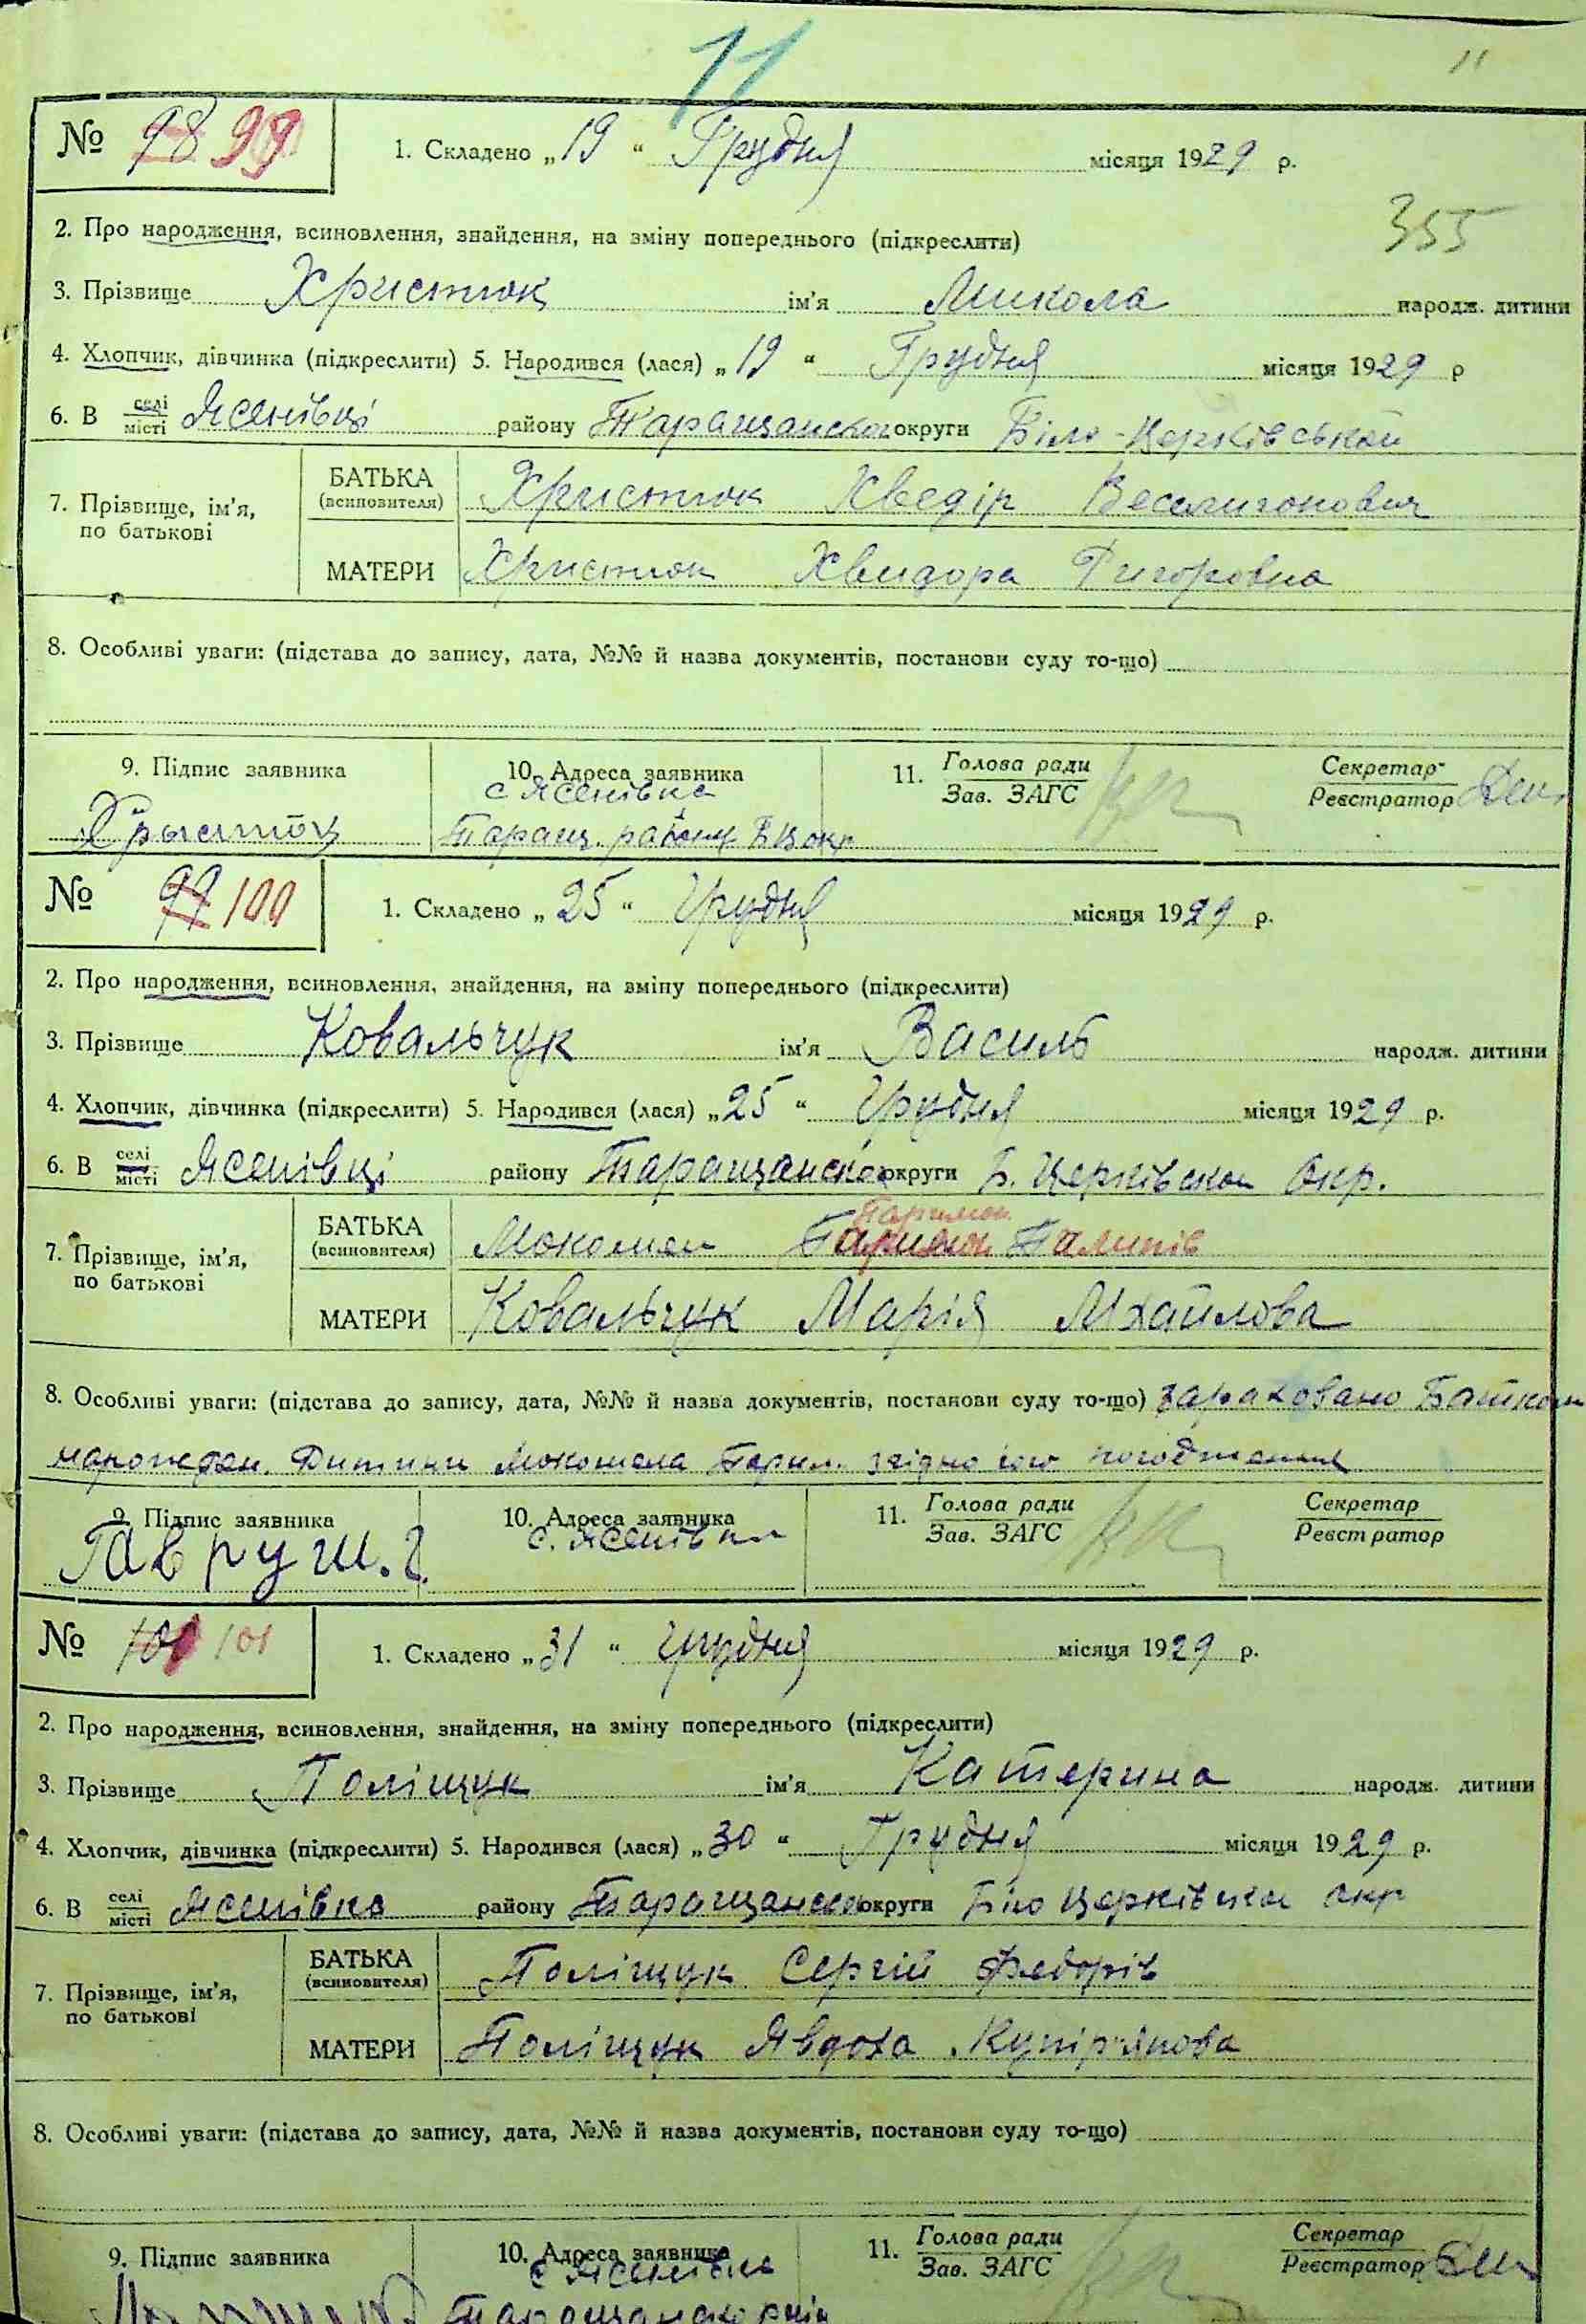 11
11
№ 98 99
1. Складено „19“ Грудня місяця 1929 р.
355
2. Про народження, всиновлення, знайдення, на зміну попереднього (підкреслити)
3. Прізвище Христюк ім'я Микола народж. дитини
4. Хлопчик, дівчинка (підкреслити) 5. Народився (лася) „19“ Грудня місяця 1929 р
6. В селі місті Ясенівці району Таращанског округи Біло-Церківської
7. Прізвище, ім'я, по батькові
БАТЬКА (всиновителя) Христюк Хведір
МАТЕРИ Христюк Хвидора Григоровна
8. Особливі уваги: (підстава до запису, дата, №№ й назва документів, постанови суду то-що)
9. Підпис заявника
10. Адреса заявника
11. Голова ради Зав. ЗАГС
Секретар Реєстратор
с Ясенівка
Таращ. району БЦ окр
№ 99 100
1. Складено „25“ Грудня місяця 1929 р.
2. Про народження, всиновлення, знайдення, на зміну попереднього (підкреслити)
3. Прізвище Ковальчук ім'я Василь народж. дитини
4. Хлопчик, дівчинка (підкреслити) 5. Народився (лася) „25“ Грудня місяця 1929 р.
6. В селі місті Ясенівці району Таращанско округи Б. Церківскої Окр.
7. Прізвище, ім'я, по батькові
Паримон
БАТЬКА (всиновителя)
МАТЕРИ Ковальчук Марія Мхайлова
8. Особливі уваги: (підстава до запису, дата, №№ й назва документів, постанови суду то-що) зараховано Батьком
народжен. Дитини згідно його погодження
9. Підпис заявника
10. Адреса заявника
11. Голова ради Зав. ЗАГС
Секретар Реєстратор
Гавруш. Г.
с. Ясенівка
№ 100 101
1. Складено „31“ Грудня місяця 1929 р.
2. Про народження, всиновлення, знайдення, на зміну попереднього (підкреслити)
3. Прізвище Поліщук ім'я Катерина народж. дитини
4. Хлопчик, дівчинка (підкреслити) 5. Народився (лася) „30“ Грудня місяця 1929 р.
6. В селі місті Ясенівка району Таращанско округи Біло Церківскої окр
7. Прізвище, ім'я, по батькові
БАТЬКА (всиновителя) Поліщук Сергій Федорів
МАТЕРИ Поліщук Явдоха Купір'янова
8. Особливі уваги: (підстава до запису, дата, №№ й назва документів, постанови суду то-що)
9. Підпис заявника
10. Адреса заявника
11. Голова ради Зав. ЗАГС
Секретар Реєстратор
с Ясенівка